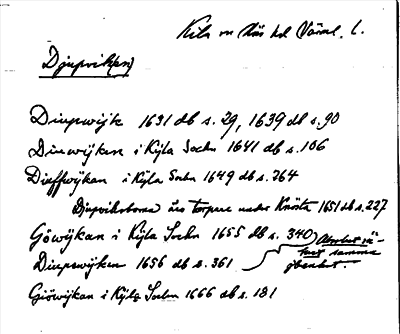 Kila sn Näs hd Värml. l.
Djupvik(en)
Diupwijk 1631 db s. 29, 1639 db s. 90
Diuewijken i Kÿla Sochn 1641 db s. 106
Dieffwijkan i Kÿla Sochn 1649 db s. 264
Djupviksborna äro torpare under Knöstad 1651 db s. 227
Göwijkan i Kÿla Sochn 1655 db s. 340
Diupewijken 1656 db s. 361
Absolut säkert samma
Giöwijkan i Kÿla Sochn 1666 db s. 181